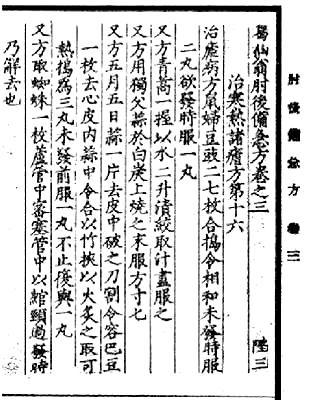 肘後備急方 卷三
葛仙翁肘後備急方卷之三 陞三
治寒熱諸瘧方第十六
治瘧病方鼠婦豆豉二七枚合搗令相和未發時服
二丸欲發時服一丸
又方青蒿一握以水二升漬絞取汁盡服之
又方用獨父蒜於白炭上燒之末服方寸七
又方五月五日蒜一片去皮中破之刀割令容巴豆
一枚去心皮內蒜中令合以竹挾以火炙之取可
熱搗爲三丸未發前服一丸不止復與一丸
又方取蜘蛛一枚蘆管中密塞管中以綰頸過發時
乃解去也